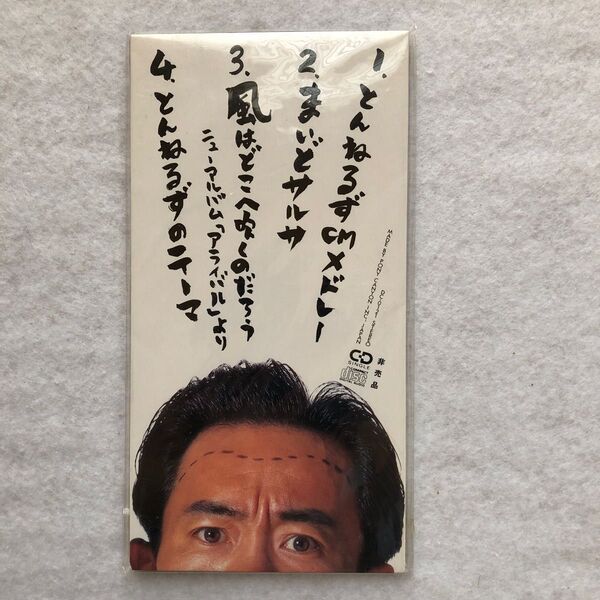 1.とんねるずCMメドレー
2.まいどサルサ
3.風はどこへ吹くのだろう
ニューアルバム「アライバル」より
4.とんねるずのテーマ
MADE BY PONY CANYON INC., JAPAN
STEREO
CD SINGLE
COMPACT disc DIGITAL AUDIO
非売品